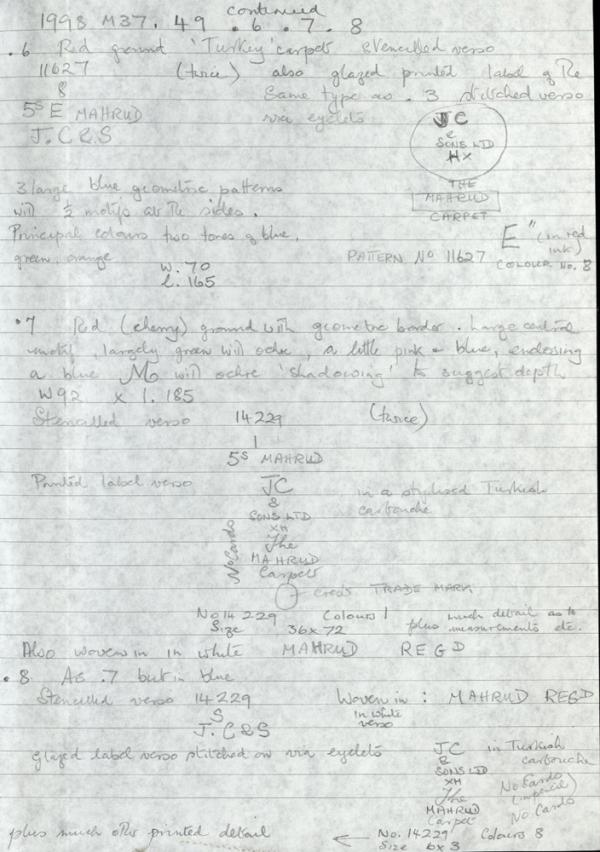 1998 M37. 49 continued .6 .7 .8
.6 Red ground 'Turkey' carpet stencilled verso
11627 (twice) also glazed printed label of the
8 same type as .3 stitched verso
5S E MAHRUD via eyelets
J.C & S
JC
&
SONS LTD
HX
THE
MAHRUD
CARPET
3 large blue geometric patterns
with ½ motifs at the sides.
Principal colours two tones of blue,
green, orange
E" (in red ink)
PATTERN No 11627 COLOUR No. 8
W. 70
l. 165
.7 Red (cherry) ground with geometric border. Large central
motif, largely green with ochre, a little pink & blue, enclosing
a blue with ochre 'shadowing' to suggest depth
W 92 x l. 185
Stencilled verso 14229 (twice)
1
5S MAHRUD
Printed label verso JC in a stylised Turkish
& carbouche
SONS LTD
XH
The
MAHRUD
Carpets
No Cardo
TRADE MARK
No 14229 Colours 1 much detail as to
Size 36x72 plus measurements etc.
Also woven in in white MAHRUD REGD
.8 As .7 but in blue
Stencilled verso 14229 Woven in : MAHRUD REGD
S in white
J.C&S verso
Glazed label verso stitched on via eyelets JC in Turkish
& carbouche
SONS LTD
XH
The
MAHRUD
Carpet
No Cardo
(imperial)
No Cardo
plus much other printed detail ← No. 14229 Colours 8
Size 6x3